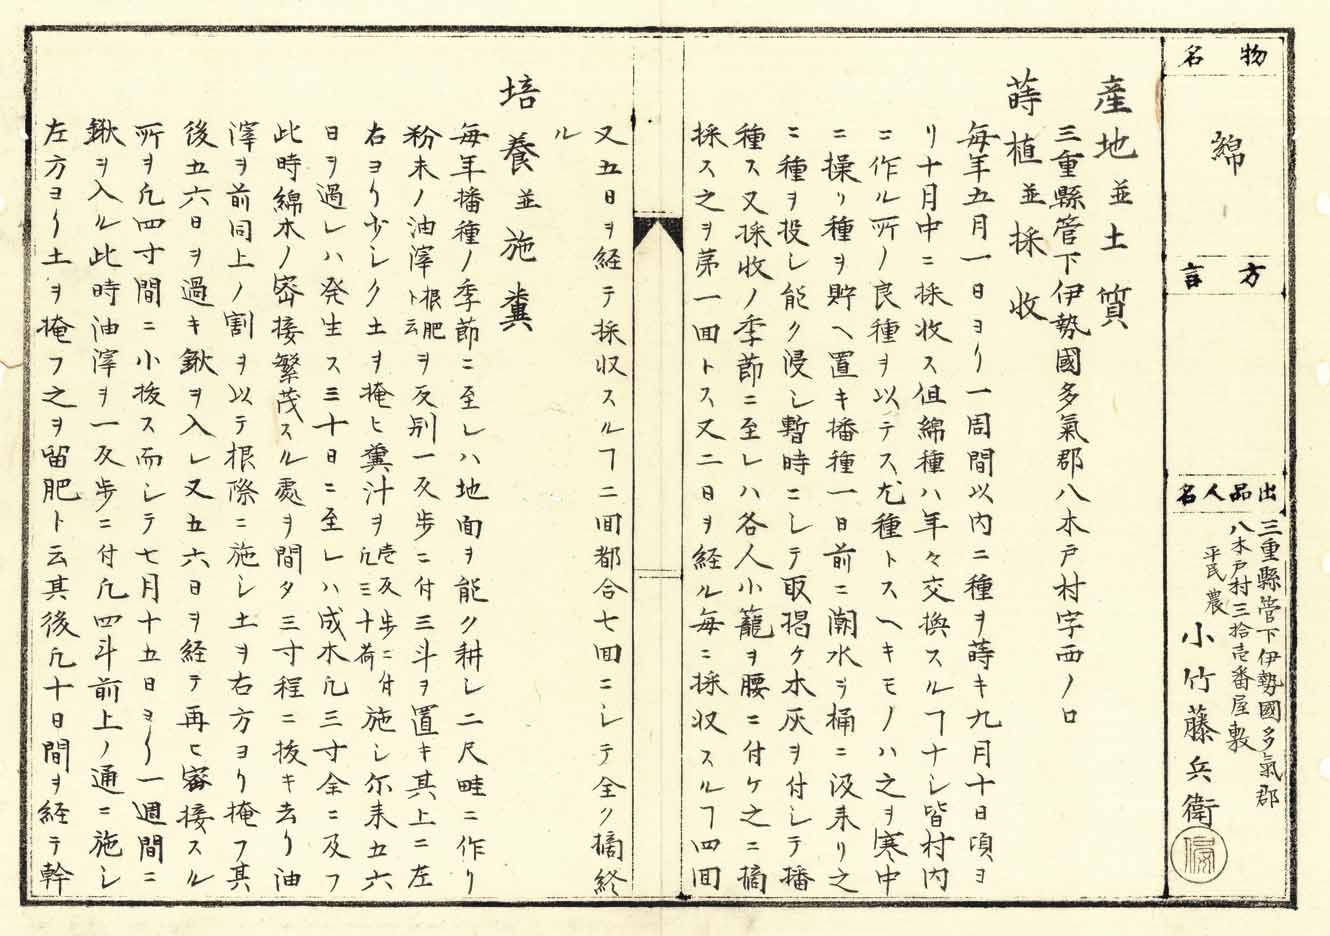 物名
綿
方言
出品人名
三重縣管下伊勢國多氣郡
八木戸村三拾壱番屋敷
平民農
小竹藤兵衛
産地並土質
三重縣管下伊勢國多氣郡八木戸村字西ノ口
蒔植並採收
毎年五月一日ヨリ一周間以内ニ種ヲ蒔キ九月十日頃ヨ
リ十月中ニ採收ス但綿種ハ年々交換スルヿナシ皆村内
ニ作ル所ノ良種ヲ以テス尤種トスヘキモノハ之ヲ寒中
ニ操リ種ヲ貯ヘ置キ播種一日前ニ潮水ヲ桶ニ汲来リ之
ニ種ヲ投シ能ク浸シ暫時ニシテ取揚ケ木灰ヲ付シテ播
種ス又採收ノ季節ニ至レハ各人小籠ヲ腰ニ付ケ之ニ摘
採ス之ヲ第一回トス又二日ヲ経ル毎ニ採収スルヿ四回
又五日ヲ経テ採収スルヿ二回都合七回ニシテ全ク摘終
ル
培養並施糞
毎年播種ノ季節ニ至レハ地面ヲ能ク耕シ二尺畦ニ作リ
粉末ノ油滓根肥ト云ヲ反別一反歩ニ付三斗ヲ置キ其上ニ左
右ヨリ少シク土ヲ掩ヒ糞汁ヲ壱反歩ニ付凡三十荷施シ尓来五六
日ヲ過レハ発生ス三十日ニ至レハ成木凡三寸余ニ及フ
此時綿木ノ密接繁茂スル處ヲ間タ三寸程ニ抜キ去リ油
滓ヲ前同上ノ割ヲ以テ根際ニ施シ土ヲ右方ヨリ掩フ其
後五六日ヲ過キ鍬ヲ入レ又五六日ヲ経テ再ヒ密接スル
所ヲ凡四寸間ニ小抜ス而シテ七月十五日ヨリ一週間ニ
鍬ヲ入ル此時油滓ヲ一反歩ニ付凡四斗前上ノ通ニ施シ
左方ヨリ土ヲ掩フ之ヲ留肥ト云其後凡十日間ヲ経テ幹